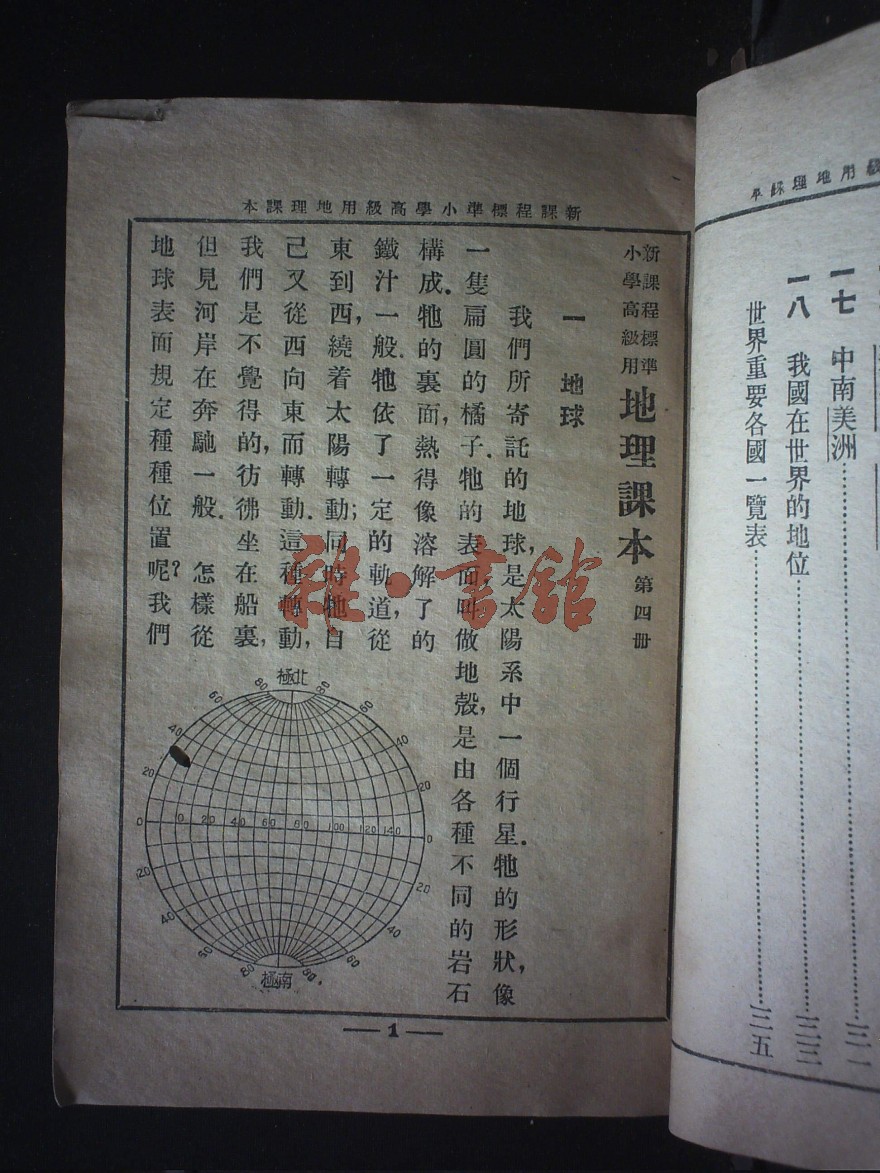 級用地理課本
一七 中南美洲……三一
一八 我國在世界的地位……三三
世界重要各國一覽表……三五
新課程標準小學高級用地理課本
新課程標準
小學高級用
地理課本 第四冊
一 地球
我們所寄託的地球,是太陽系中一個行星.牠的形狀,像
一隻扁圓的橘子.牠的表面,叫做地殼,是由各種不同的岩石
構成.牠的裏面,熱得像溶解了的
鐵汁一般.牠依了一定的軌道,從
東到西,繞着太陽轉動;同時牠自
己又從西向東而轉動.這種轉動,
我們是不覺得的,彷彿坐在船裏,
但見河岸在奔馳一般. 怎樣從
地球表面規定種種位置呢?我們
北極
80 80
60 60
40 40
20 20
0 0 20 40 60 80 100 120 140 0
20 20
40 40
60
80 80
南極
— 1 —
雜·書館